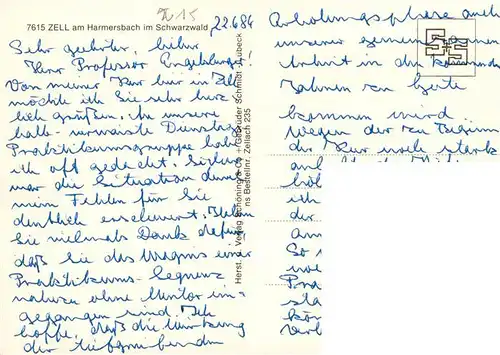 7615 ZELL am Harmersbach im Schwarzwald
22.6.84
Sehr geehrter, lieber
Herr Professor Engelberger,
Von meiner Kur hier in Zell
möchte ich Sie sehr herz
lich grüßen. An unsere
halb-verwaiste Dienstags
Praktikumsgruppe habe
ich oft gedacht. Sicher
war die Situation durch
mein Fehlen für Sie
deutlich erschwert. Haben
Sie vielmals Dank dafür,
daß Sie das Wagnis einer
Praktikums-Sequenz
nahezu ohne Mentor ein-
gegangen sind. Ich
hoffe, daß die Wirkung
der tiefgreifenden
Herst. u. Verlag Schöning & Co + Gebrüder Schmidt, Lübeck
ns Bestellnr. Zellach 235
Erholungsphase auch
unserer gemeinsamen
Arbeit in den kommenden
Jahren zu Gute
kommen wird.
Wegen der zu Beginn
der Kur noch stark
ich
der
So
Pra
sta
kön